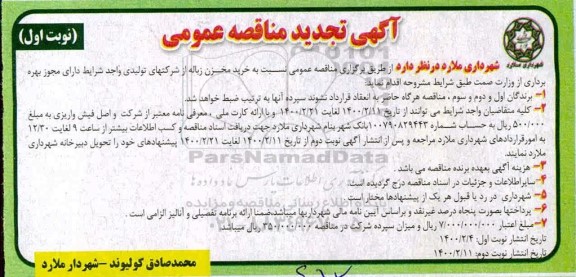 آگهی تجدید مناقصه عمومی
(نوبت اول)
شهرداری ملارد
شهرداری ملارد درنظر دارد از طریق برگزاری مناقصه عمومی نسبت به خرید مخزن زباله از شرکتهای تولیدی واجد شرایط دارای مجوز بهره
برداری از وزارت صمت طبق شرایط مشروحه اقدام نماید.
۱- برندگان اول و دوم و سوم ، مناقصه هرگاه حاضر به انعقاد قرارداد نشوند سپرده آنها به ترتیب ضبط خواهد شد.
۲- کلیه متقاضیان واجد شرایط می توانند از تاریخ ۱۴۰۰/۲/۱۱ لغایت ۱۴۰۰/۲/۲۱ و با ارائه کارت ملی ، معرفی نامه معتبر از شرکت و اصل فیش واریزی به مبلغ
۵۰۰/۰۰۰ ریال به حساب شماره ۱۰۰۷۹۰۸۲۹۴۴۳ بانک شهر بنام شهرداری ملارد جهت دریافت اسناد مناقصه و کسب اطلاعات بیشتر از ساعت ۹ لغایت ۱۲/۳۰
به امور قراردادهای شهرداری ملارد مراجعه و پس از انتشار آگهی نوبت دوم از تاریخ ۱۴۰۰/۲/۱۱ لغایت ۱۴۰۰/۲/۲۱ پیشنهادهای خود را تحویل دبیرخانه شهرداری
ملارد نمایند.
۳- هزینه آگهی بعهده برنده مناقصه می باشد .
۴- سایر اطلاعات و جزئیات در اسناد مناقصه درج گردیده است.
۵- شهرداری در رد یا قبول هر یک از پیشنهادها مختار است
۶- پرداختها بصورت پنجاه درصد غیرنقد و براساس آیین نامه مالی شهرداریها میباشد،ضمنا ارائه برنامه تفصیلی و آنالیز الزامی است .
۷- مبلغ اعتبار ۷/۰۰۰/۰۰۰/۰۰۰ ریال و میزان سپرده شرکت در مناقصه ۳۵۰/۰۰۰/۰۰۰ ریال میباشد
تاریخ انتشار نوبت اول: ۱۴۰۰/۲/۴
تاریخ انتشار نوبت دوم: ۱۴۰۰/۲/۱۱
محمدصادق کولیوند – شهردار ملارد
ParsNamadData